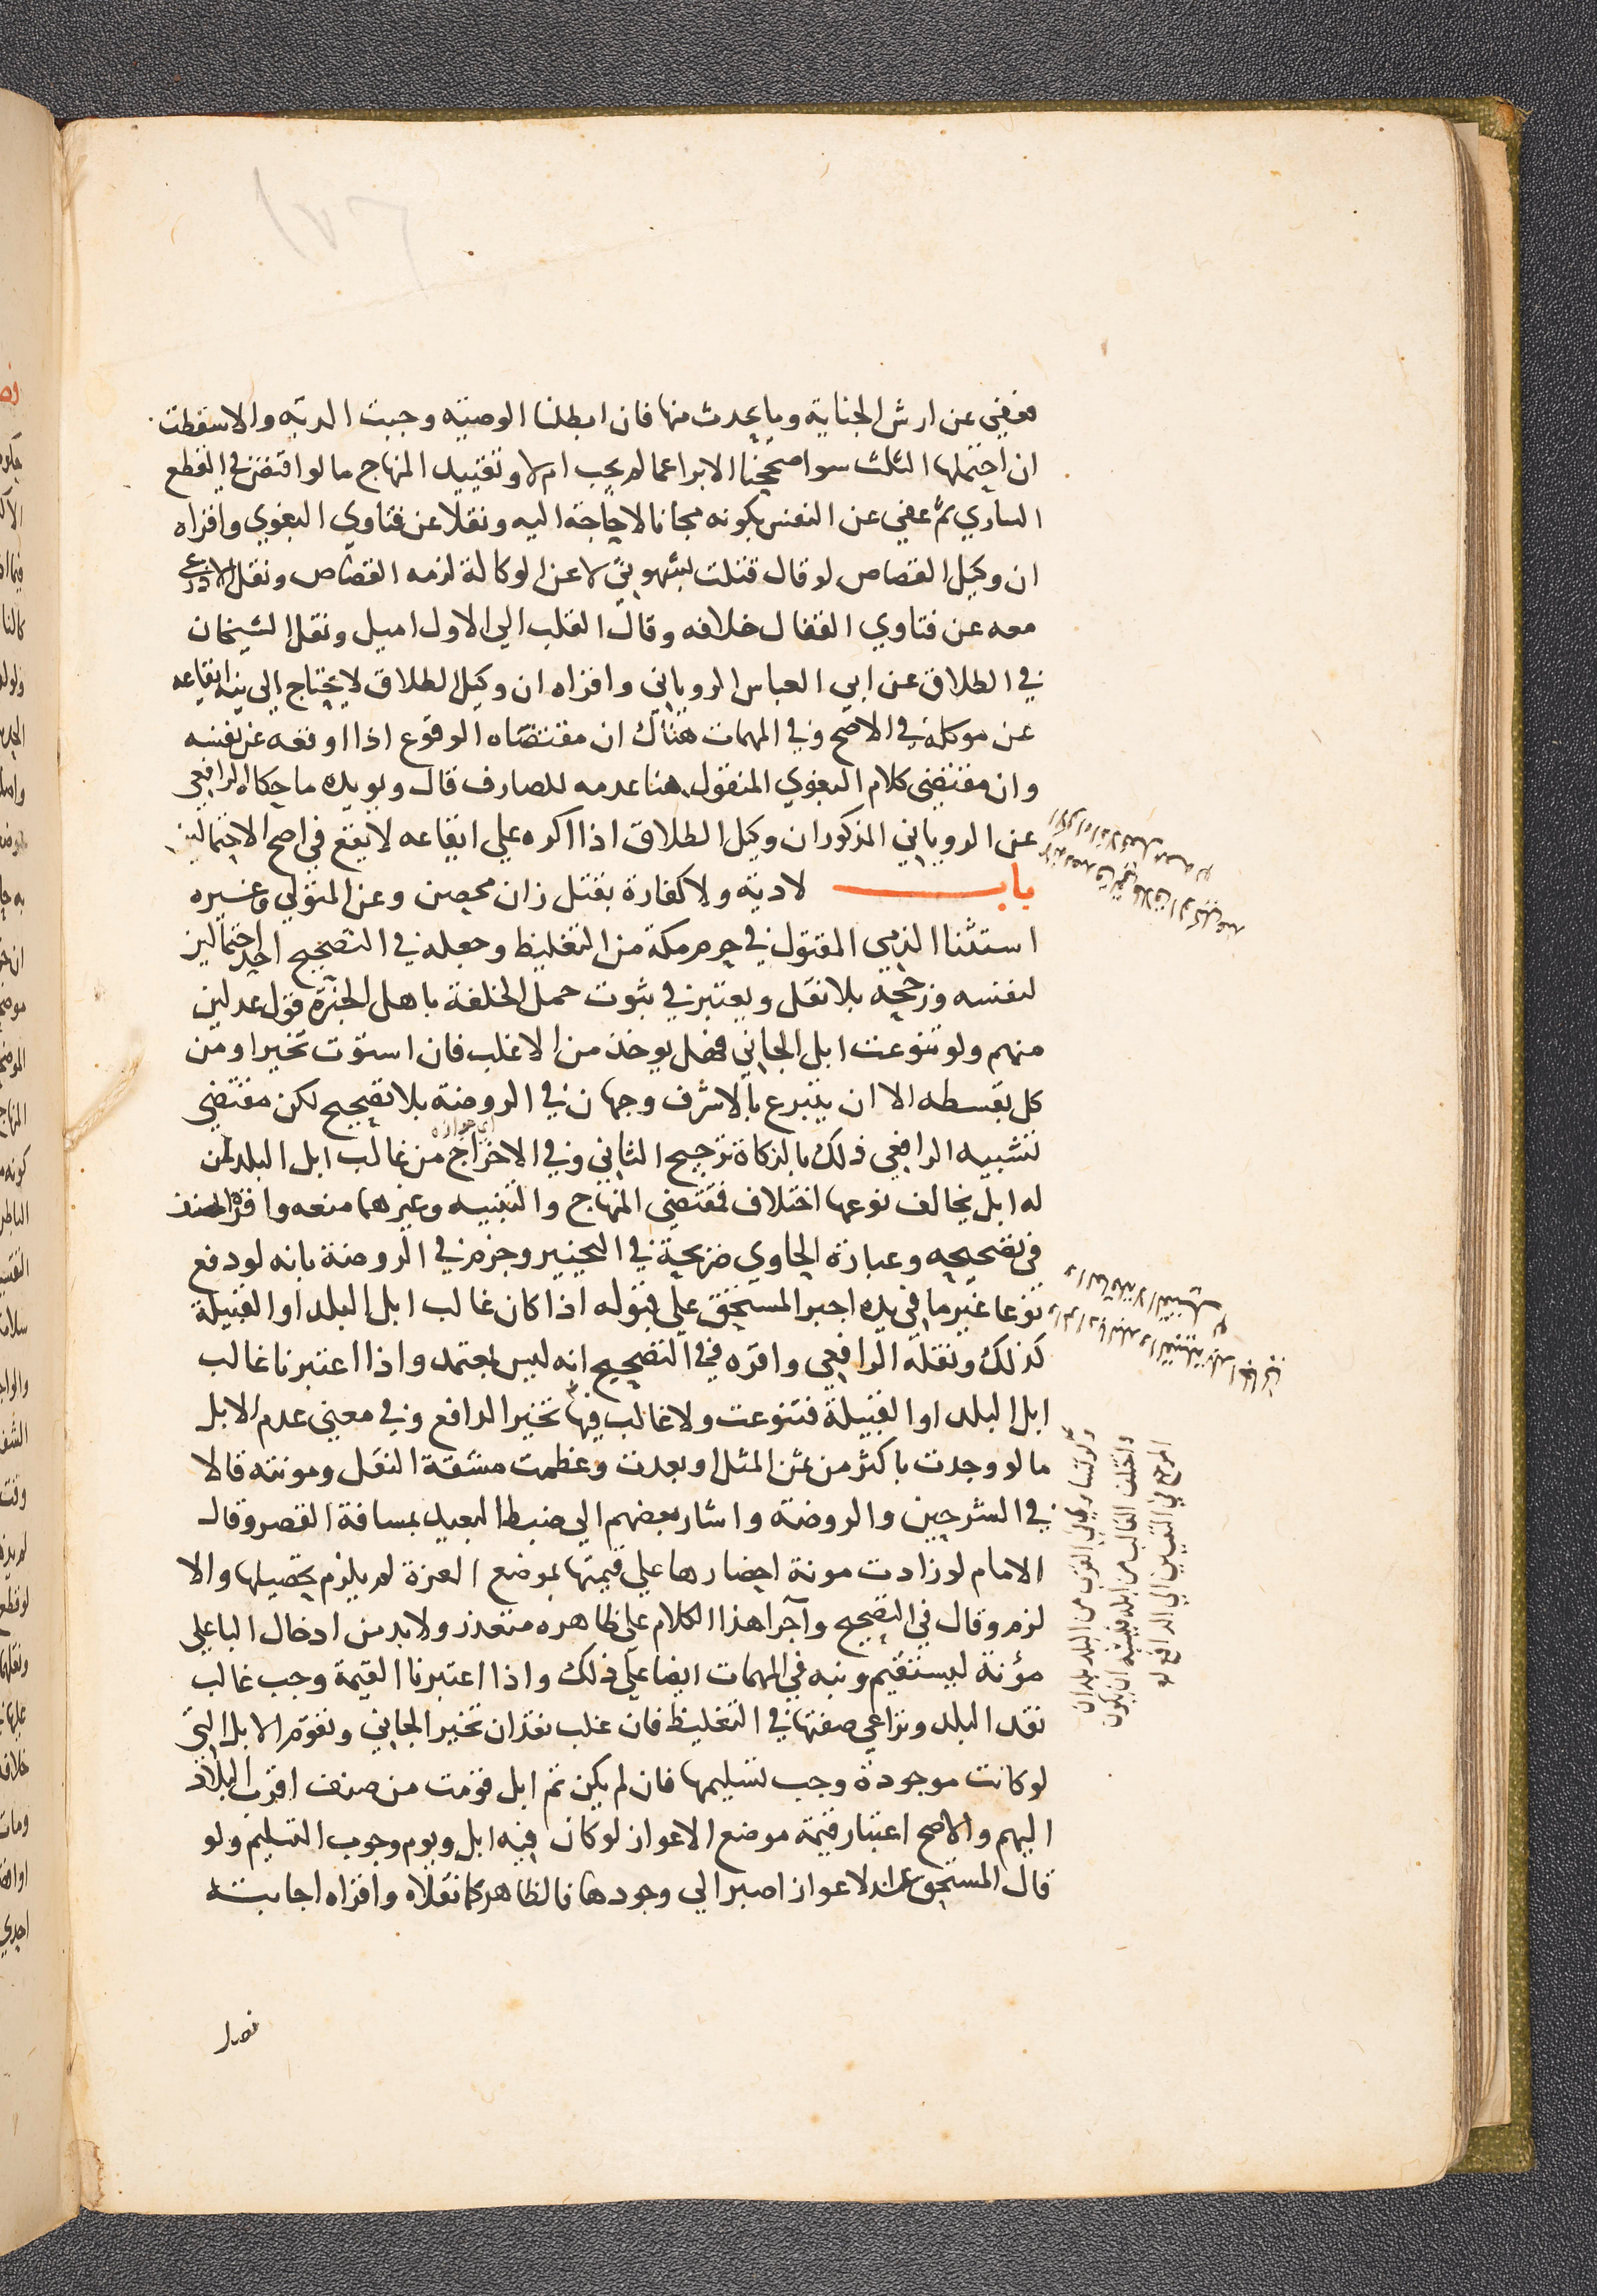 فعفي عن ارش الجناية وما يحدث منها فان ابطلنا الوصية وجبت الدية والا سقطت
ان احتملها الثلث سوا صححنا الابرا عما لم يجب ام لا وتقييد المنهاج ما لو اقتص في القطع
الساري ثم عفي عن النفس بكونه مجانا لا حاجة اليه ونقلا عن فتاوي البغوي واقراه
ان وكيل القصاص لو قال قتلت بشهوتي لا عن الوكالة لزمه القصاص ونقل الاذرعي
معه عن فتاوي القفال خلافه وقال القلب الي الاول اميل ونقل الشيخان
في الطلاق عن ابي العباس الروياني واقراه ان وكيل الطلاق لا يحتاج الي نية ايقاعه
عن موكله في الاصح وفي المهمات هناك ان مقتضاه الوقوع اذا اوقعه عن نفسه
وان مقتضي كلام البغوي المنقول هنا عدمه للصارف قال ويويده ما حكاه الرافعي
عن الروياني المذكور ان وكيل الطلاق اذا اكره علي ايقاعه لا يقع في اصح الاحتمالين
باب لا دية ولا كفارة بقتل زان محصن وعن المتولي وغيره
استثنا الذمي المقتول في حرم مكة من التغليظ وجعله في التصحيح احد احتمالين
لنفسه ورجحه بلا نقل ويعتبر في ثبوت حمل الخلفة باهل الخبرة قول عدلين
منهم ولو تنوعت ابل الجاني فهل يوخذ من الاغلب فان استوت تخير او من
كل بقسطه الا ان يتبرع بالاشرف وجهان في الروضة بلا تصحيح لكن مقتضي
تشبيه الرافعي ذلك بالزكاة ترجيح الثاني وفي الاخراج من غالب ابل البلد لمن
اي جوازه
له ابل يخالف نوعها اختلاف فمقتضي المنهاج والتنبيه وغيرهما منعه واقره المصنف
في تصحيحه وعبارة الحاوي صريحة في التخيير وجزم في الروضة بانه لو دفع
نوعا غير ما في يده اجبر المستحق علي قبوله اذا كان غالب ابل البلد او القبيلة
كذلك ونقله الرافعي واقره في التصحيح انه ليس بمعتمد واذا اعتبرنا غالب
ابل البلد او القبيلة فتنوعت ولا غالب فيها تخير الدافع وفي معني عدم الابل
ما لو وجدت باكثر من ثمن المثل او بعدت وعظمت مشقة النقل ومونته قالا
في الشرحين والروضة واشار بعضهم الي ضبط البعيد بمسافة القصر وقال
الامام لو زادت مونة احضارها علي قيمتها بموضع العزة لم يلزم تحصيلها والا
لزم وقال في التصحيح وآجرا هذا الكلام علي ظاهره متعذر ولا بد من ادخال الباعلي
مؤنة ليستقيم ونبه في المهمات ايضا علي ذلك واذا اعتبرنا القيمة وجب غالب
نقد البلد وتراعي صفتها في التغليظ فان غلب نقدان تخير الجاني وتقوم الابل التي
لو كانت موجودة وجب تسليمها فان لم يكن ثم ابل قومت من صنف اقرب البلاد
اليهم والاصح اعتبار قيمة موضع الاعواز لو كان فيه ابل ويوم وجوب التسليم ولو
قال المستحق عند الاعواز اصبر الي وجودها فالظاهر كما نقلاه واقراه اجابته
فصل
ولو تساوي في القرب من البلد بلدان
واختلف الغالب من ابلهما فيشبه ان يكون
المرجع في التعيين الي الدافع